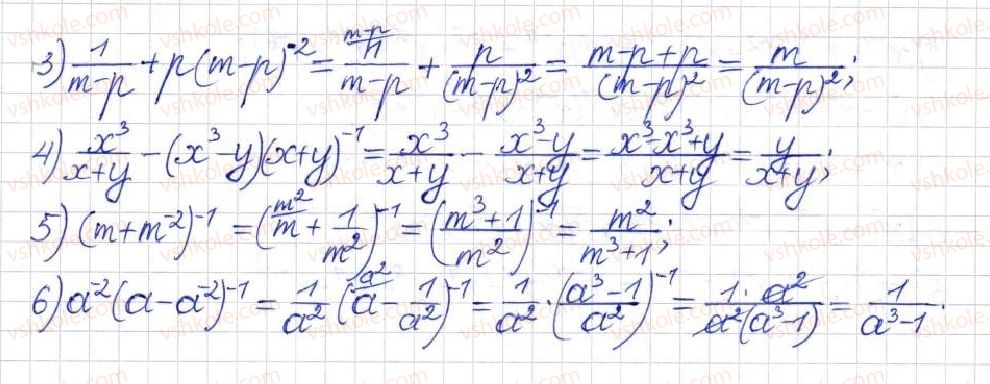 3) 1/(m-p) + p(m-p)^-2 = (m-p/ 1)/(m-p) + p/(m-p)^2 = (m-p+p)/(m-p)^2 = m/(m-p)^2;
4) x^3/(x+y) - (x^3-y)(x+y)^-1 = x^3/(x+y) - (x^3-y)/(x+y) = (x^3-x^3+y)/(x+y) = y/(x+y);
5) (m+m^-2)^-1 = (m^2/ m + 1/m^2)^-1 = ((m^3+1)/m^2)^-1 = m^2/(m^3+1);
6) a^-2(a-a^-2)^-1 = 1/a^2 (a^2/ a - 1/a^2)^-1 = 1/a^2 · ((a^3-1)/a^2)^-1 = (1·a^2)/(a^2(a^3-1)) = 1/(a^3-1).
vshkole.com